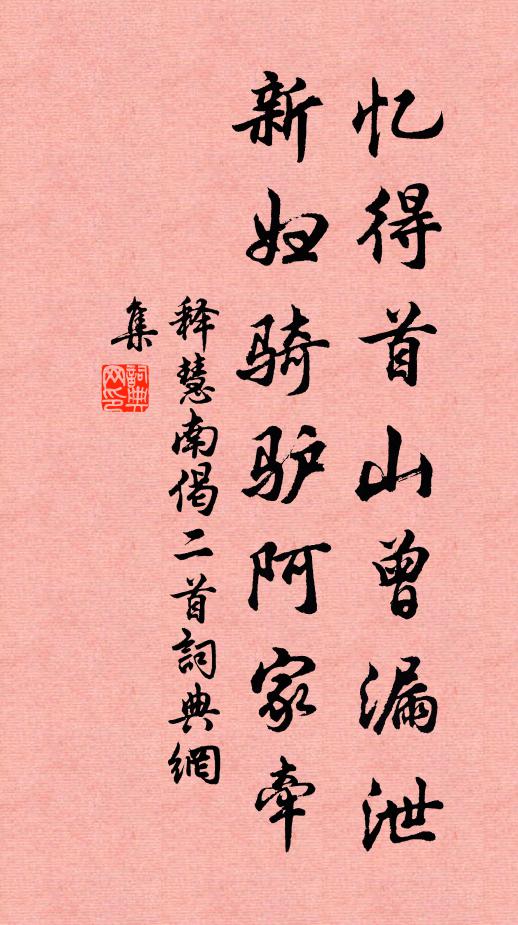 忆得首山曾漏泄
新妇骑驴阿家牵
释慧南偈二首詞典網
集
詞典
网印